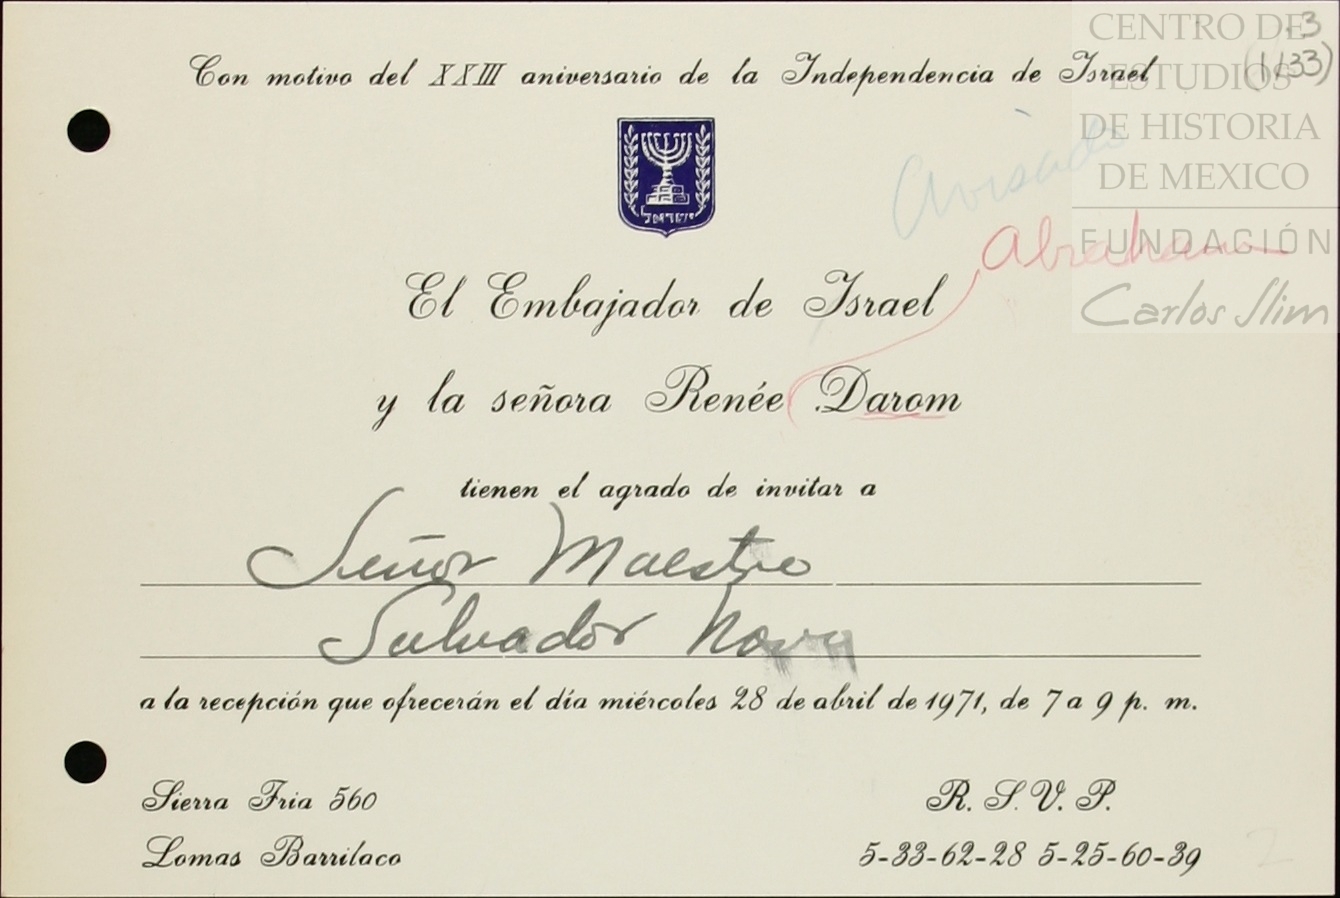 3
(1133)
CENTRO DE
ESTUDIOS
DE HISTORIA
DE MEXICO
FUNDACIÓN
Carlos Slim
Con motivo del XXIII aniversario de la Independencia de Israel
ישראל
avisado
Abraham
El Embajador de Israel
y la señora Renée Darom
tienen el agrado de invitar a
Señor Maestro
Salvador Novo
a la recepción que ofrecerán el día miércoles 28 de abril de 1971, de 7 a 9 p. m.
Sierra Fria 560
Lomas Barrilaco
R. S. V. P.
5-33-62-28 5-25-60-39
2